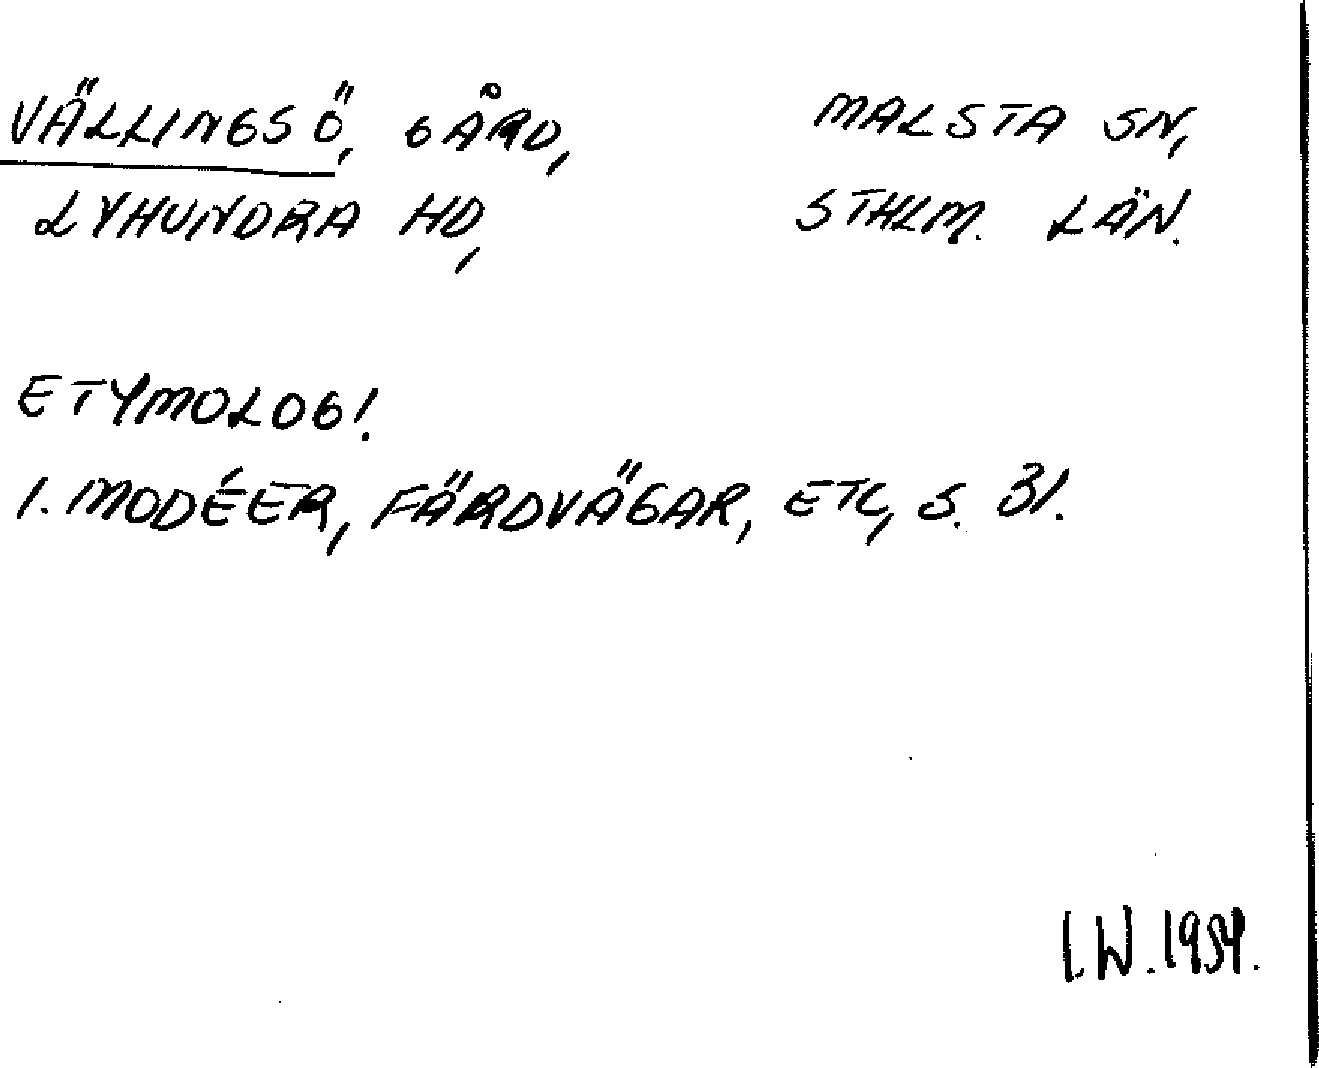 VÄLLINGSÖ, GÅRD, MALSTA SN,
LYHUNDRA HD, STHLM. LÄN.
ETYMOLOGI.
I. MODÉER, FÄRDVÄGAR, ETC, S. 31.
I.W. 1954.